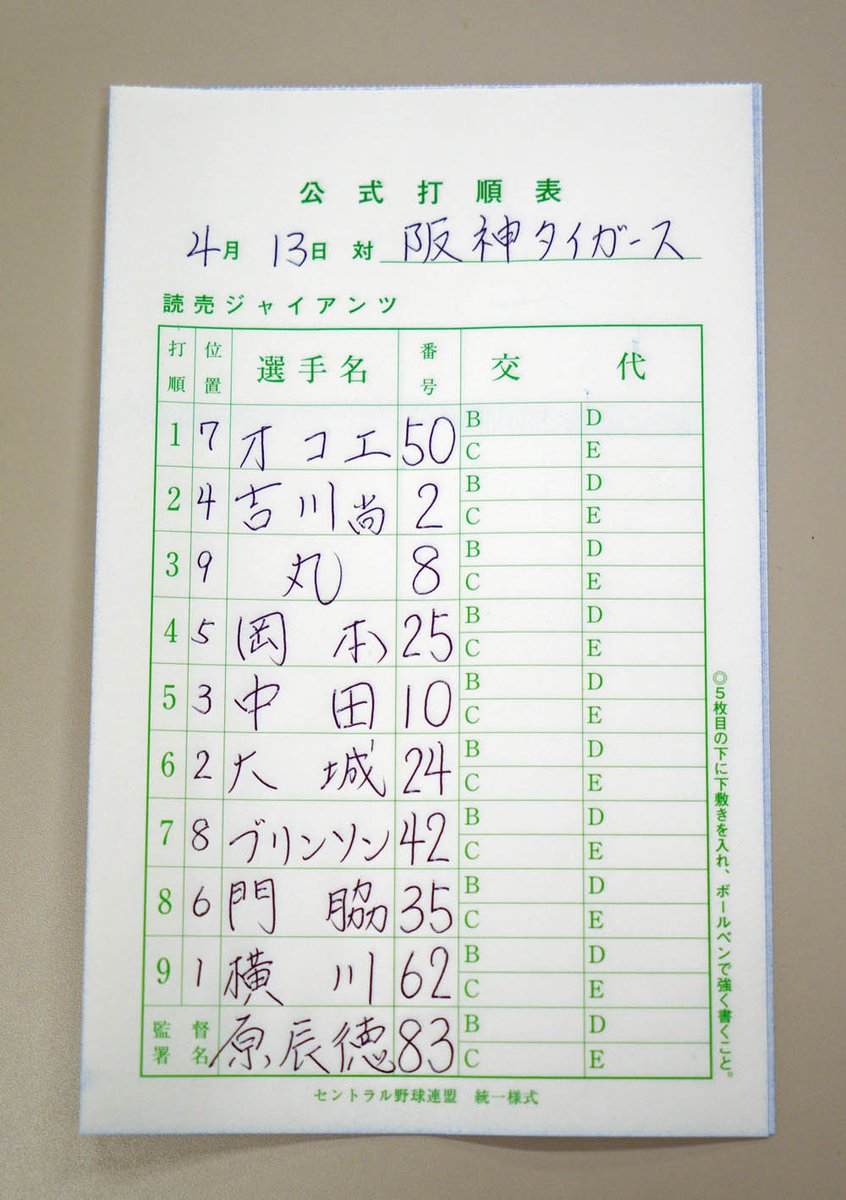 公式打順表
4月 13日 対 阪神タイガース
読売ジャイアンツ
打順 位置 選手名 番号 交代
1 7 オコエ 50 B D
C E
2 4 吉川尚 2 B D
C E
3 9 丸 8 B D
C E
4 5 岡本 25 B D
C E
5 3 中田 10 B D
C E
6 2 大城 24 B D
C E
7 8 ブリンソン 42 B D
C E
8 6 門脇 35 B D
C E
9 1 横川 62 B D
C E
監督署名 原辰徳 83 B D
C E
セントラル野球連盟 統一様式
◎5枚目の下に下敷きを入れ、ボールペンで強く書くこと。